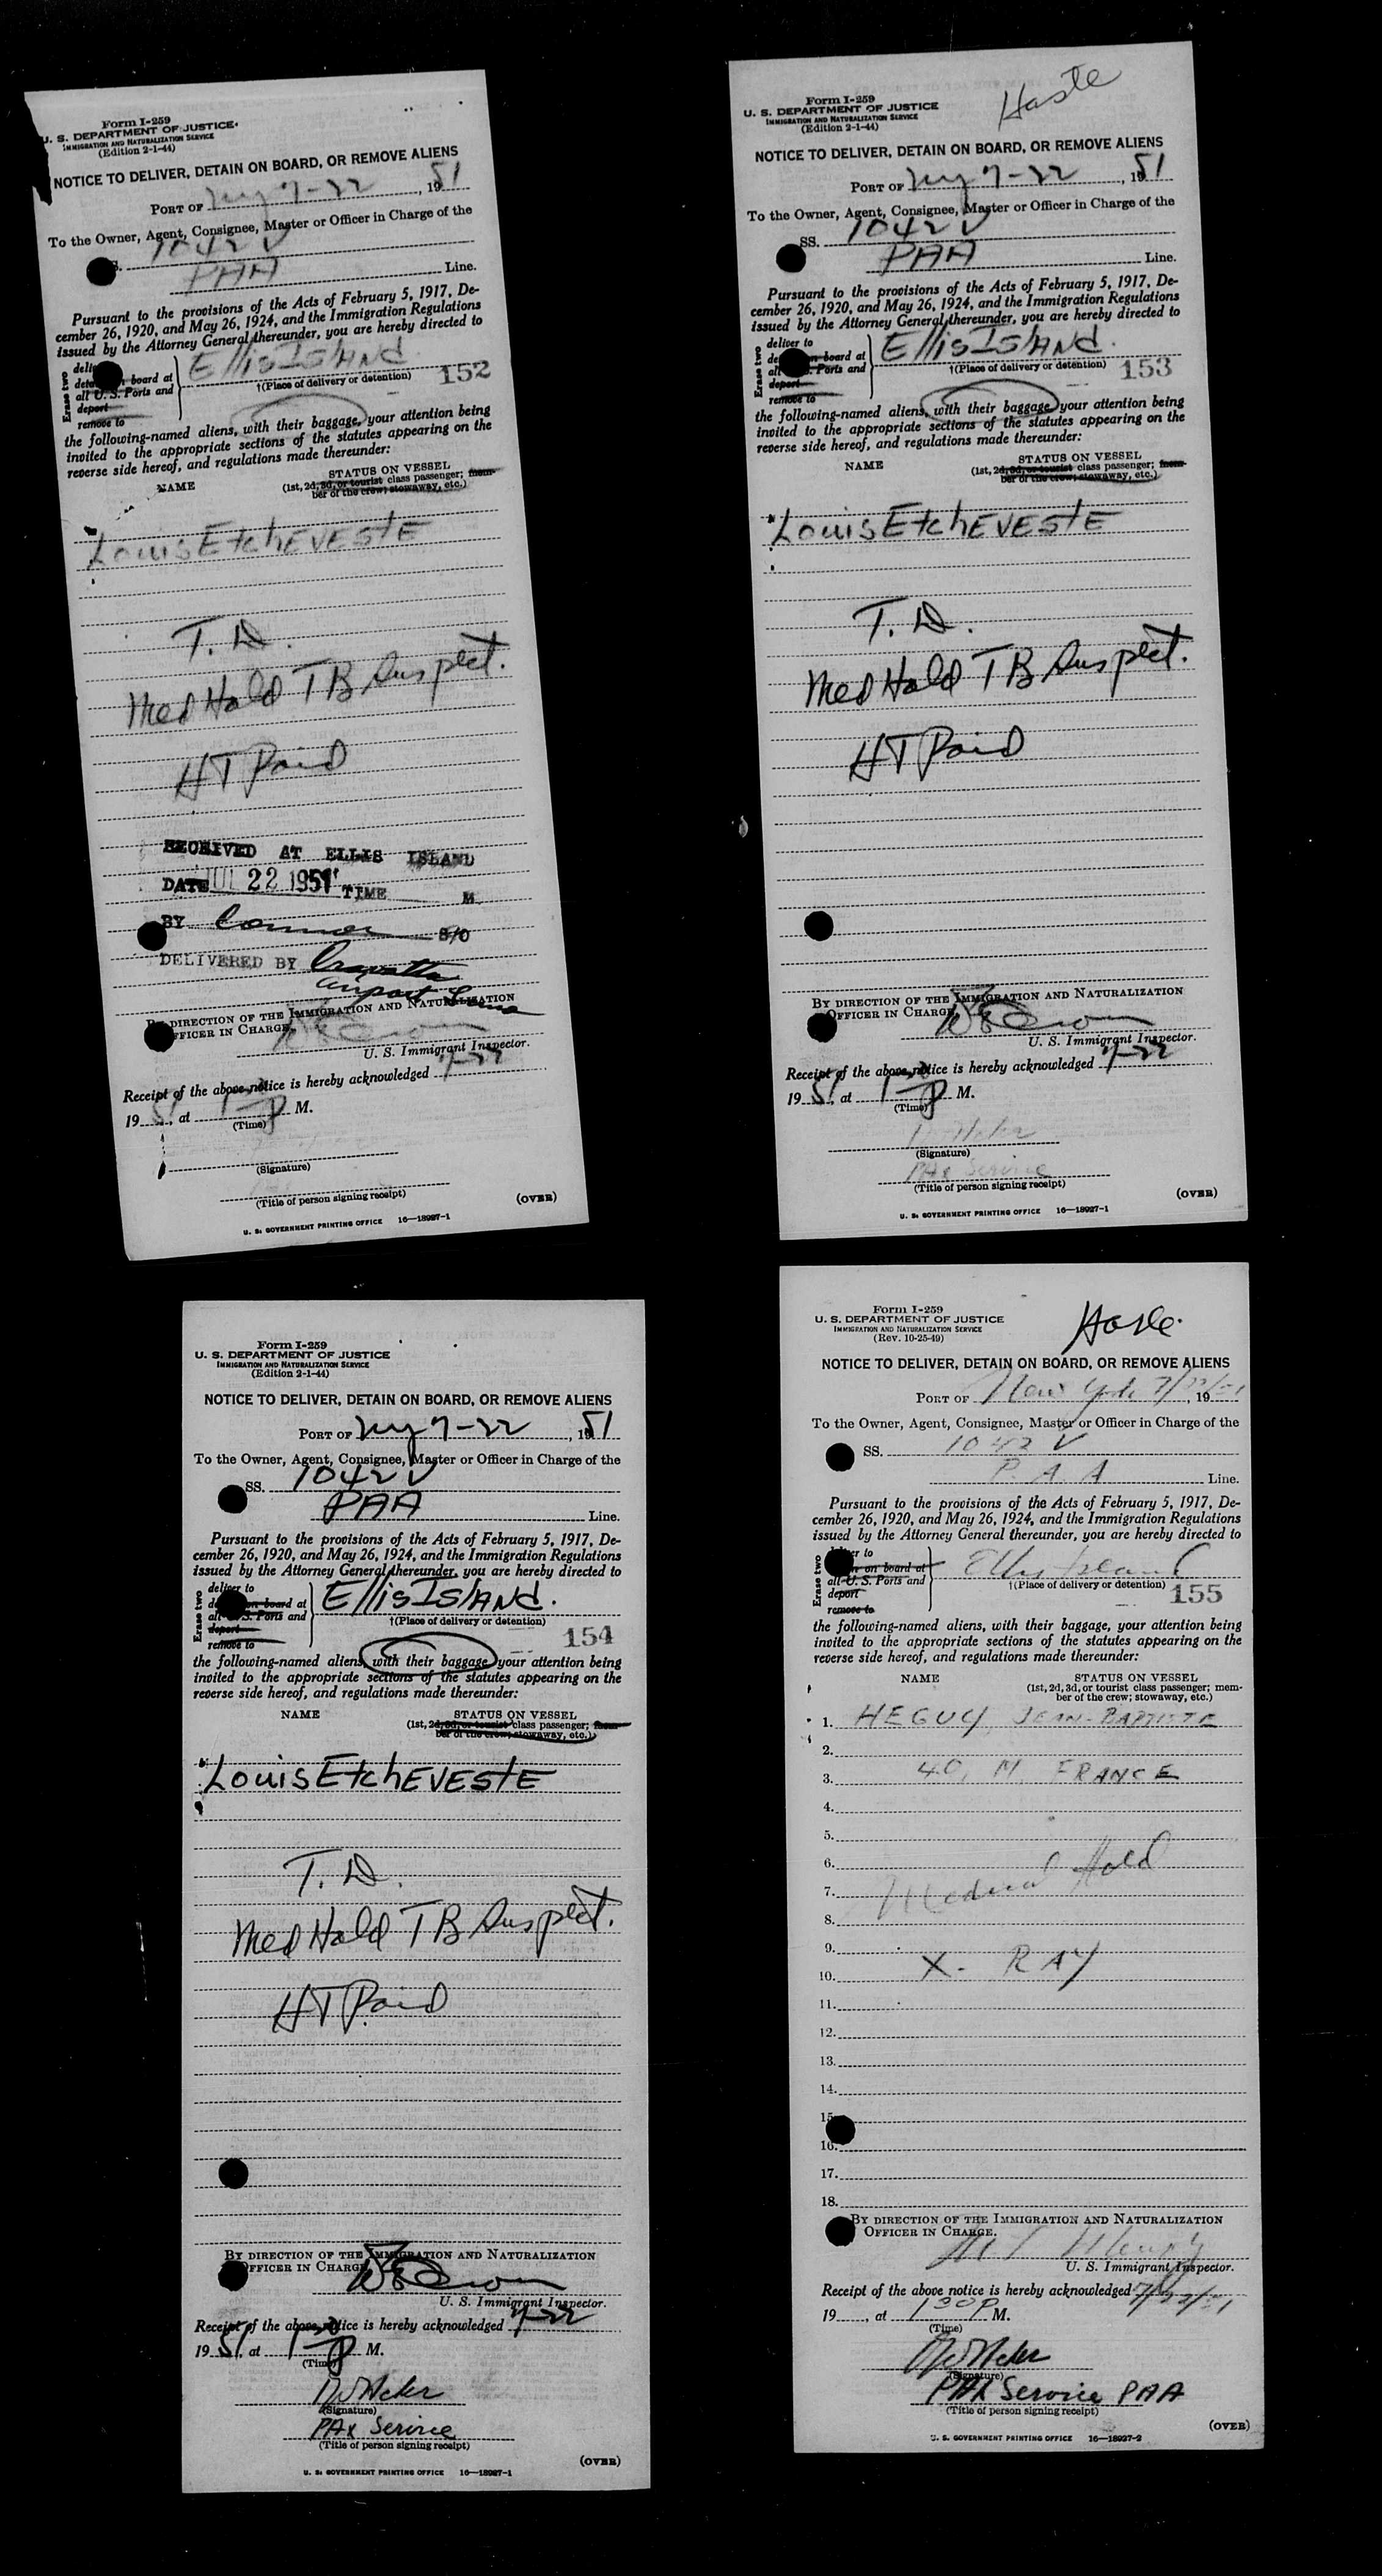 Form I-259
U. S. DEPARTMENT OF JUSTICE
IMMIGRATION AND NATURALIZATION SERVICE
(Edition 2-1-44)
NOTICE TO DELIVER, DETAIN ON BOARD, OR REMOVE ALIENS
PORT OF ny 7-22, 1951
To the Owner, Agent, Consignee, Master or Officer in Charge of the
1042 V
PAA Line.
Pursuant to the provisions of the Acts of February 5, 1917, De-
cember 26, 1920, and May 26, 1924, and the Immigration Regulations
issued by the Attorney General thereunder, you are hereby directed to
Erase two
board at
all U. S. Ports and
deport
remove to
Ellis Island
†(Place of delivery or detention)
152
the following-named aliens, with their baggage, your attention being
invited to the appropriate sections of the statutes appearing on the
reverse side hereof, and regulations made thereunder:
NAME
STATUS ON VESSEL
(1st, 2d, 3d, or tourist class passenger; mem-
ber of the crew; stowaway, etc.)
Louis EtchEVEStE
T. D.
Med Hold TB Suspect.
HT Paid
RECEIVED AT ELLIS ISLAND
DATE JUL 22 1951 TIME M
BY S/O
DELIVERED BY
BY DIRECTION OF THE IMMIGRATION AND NATURALIZATION
OFFICER IN CHARGE.
U. S. Immigrant Inspector.
Receipt of the above notice is hereby acknowledged 7-22
1951, at 1 30 P M.
(Time)
(Signature)
(Title of person signing receipt)
(OVER)
U. S. GOVERNMENT PRINTING OFFICE 16—18927-1
Haste
Form I-259
U. S. DEPARTMENT OF JUSTICE
IMMIGRATION AND NATURALIZATION SERVICE
(Edition 2-1-44)
NOTICE TO DELIVER, DETAIN ON BOARD, OR REMOVE ALIENS
PORT OF ny 7-22, 1951
To the Owner, Agent, Consignee, Master or Officer in Charge of the
SS. 1042 V
PAA Line.
Pursuant to the provisions of the Acts of February 5, 1917, De-
cember 26, 1920, and May 26, 1924, and the Immigration Regulations
issued by the Attorney General thereunder, you are hereby directed to
Erase two
deliver to
on board at
all U. S. Ports and
deport
remove to
Ellis Island.
†(Place of delivery or detention)
153
the following-named aliens, with their baggage, your attention being
invited to the appropriate sections of the statutes appearing on the
reverse side hereof, and regulations made thereunder:
NAME
STATUS ON VESSEL
(1st, 2d, 3d, or tourist class passenger; mem-
ber of the crew; stowaway, etc.)
Louis EtchEVEStE
T. D.
Med Hold TB Suspect.
HT Paid
BY DIRECTION OF THE IMMIGRATION AND NATURALIZATION
OFFICER IN CHARGE.
U. S. Immigrant Inspector.
Receipt of the above notice is hereby acknowledged 7-22
1951, at 1 30 P M.
(Time)
(Signature)
PAX Service
(Title of person signing receipt)
(OVER)
U. S. GOVERNMENT PRINTING OFFICE 16—18927-1
Form I-259
U. S. DEPARTMENT OF JUSTICE
IMMIGRATION AND NATURALIZATION SERVICE
(Edition 2-1-44)
NOTICE TO DELIVER, DETAIN ON BOARD, OR REMOVE ALIENS
PORT OF ny 7-22, 1951
To the Owner, Agent, Consignee, Master or Officer in Charge of the
SS. 1042 V
PAA Line.
Pursuant to the provisions of the Acts of February 5, 1917, De-
cember 26, 1920, and May 26, 1924, and the Immigration Regulations
issued by the Attorney General thereunder, you are hereby directed to
Erase two
deliver to
on board at
all U. S. Ports and
deport
remove to
Ellis Island.
†(Place of delivery or detention)
154
the following-named aliens, with their baggage, your attention being
invited to the appropriate sections of the statutes appearing on the
reverse side hereof, and regulations made thereunder:
NAME
STATUS ON VESSEL
(1st, 2d, 3d, or tourist class passenger; mem-
ber of the crew; stowaway, etc.)
Louis EtchEVEStE
T. D.
Med Hold TB Suspect.
HT Paid
BY DIRECTION OF THE IMMIGRATION AND NATURALIZATION
OFFICER IN CHARGE.
U. S. Immigrant Inspector.
Receipt of the above notice is hereby acknowledged 7-22
1951, at 1 30 P M.
(Time)
(Signature)
PAX Service
(Title of person signing receipt)
(OVER)
U. S. GOVERNMENT PRINTING OFFICE 16—18927-1
Haste.
Form I-259
U. S. DEPARTMENT OF JUSTICE
IMMIGRATION AND NATURALIZATION SERVICE
(Rev. 10-25-49)
NOTICE TO DELIVER, DETAIN ON BOARD, OR REMOVE ALIENS
PORT OF New York 7/22/51, 19
To the Owner, Agent, Consignee, Master or Officer in Charge of the
SS. 1042 V
P. A. A Line.
Pursuant to the provisions of the Acts of February 5, 1917, De-
cember 26, 1920, and May 26, 1924, and the Immigration Regulations
issued by the Attorney General thereunder, you are hereby directed to
Erase two
on board at
all U. S. Ports and
deport
remove to
Ellis Island
†(Place of delivery or detention)
155
the following-named aliens, with their baggage, your attention being
invited to the appropriate sections of the statutes appearing on the
reverse side hereof, and regulations made thereunder:
NAME
STATUS ON VESSEL
(1st, 2d, 3d, or tourist class passenger; mem-
ber of the crew; stowaway, etc.)
1. HEGUY, JEAN-BAPTISTE
2.
3. 40, M, FRANCE
4.
5.
6.
7. Medical Hold
8.
9.
10. X-RAY
11.
12.
13.
14.
15.
16.
17.
18.
BY DIRECTION OF THE IMMIGRATION AND NATURALIZATION
OFFICER IN CHARGE.
U. S. Immigrant Inspector.
Receipt of the above notice is hereby acknowledged 7/22/51
19, at 130P M.
(Time)
(Signature)
PAX Service PAA
(Title of person signing receipt)
(OVER)
U. S. GOVERNMENT PRINTING OFFICE 16—18927-2